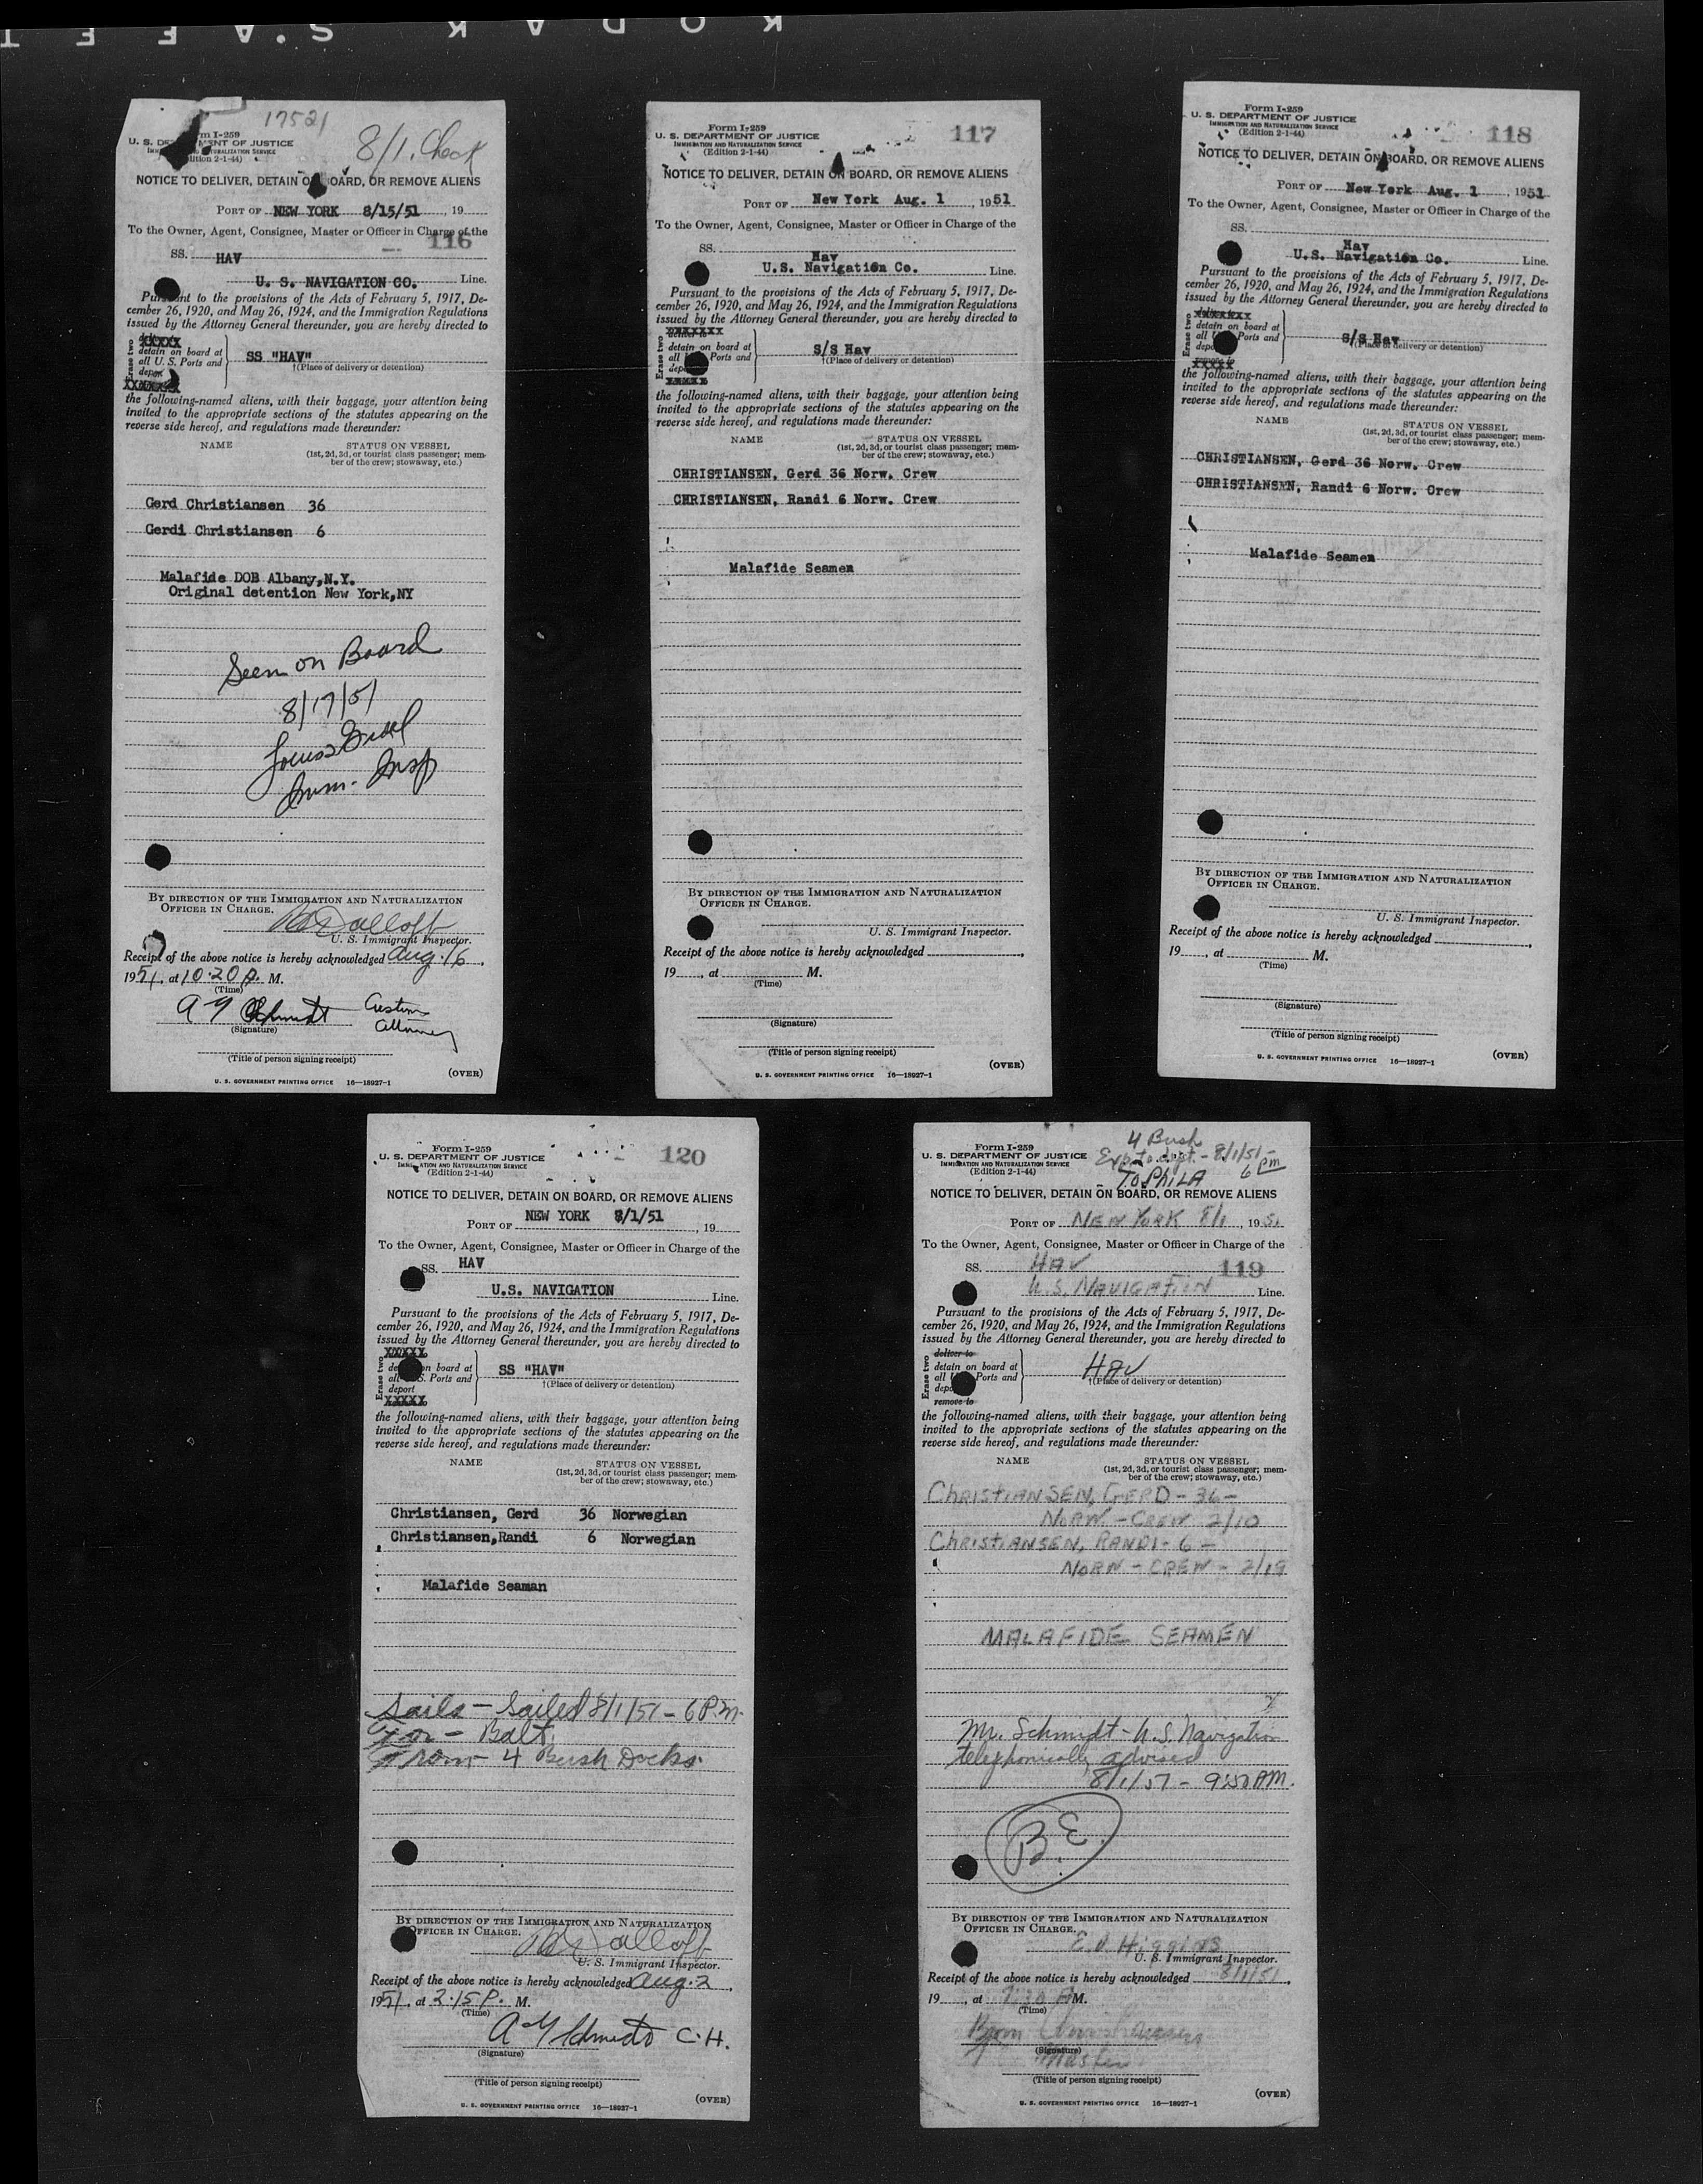 KODAK S.A F E T
17521
8/1. Check
m I-259
U. S. DE MENT OF JUSTICE
NATURALIZATION SERVICE
ition 2-1-44)
NOTICE TO DELIVER, DETAIN O OARD, OR REMOVE ALIENS
PORT OF NEW YORK 8/15/51, 19
To the Owner, Agent, Consignee, Master or Officer in Charge of the
116
SS. HAV
U. S. NAVIGATION CO. Line.
Pursuant to the provisions of the Acts of February 5, 1917, De-
cember 26, 1920, and May 26, 1924, and the Immigration Regulations
issued by the Attorney General thereunder, you are hereby directed to
Erase two
XXXXX
detain on board at
all U. S. Ports and
depor
XXXXXX
SS "HAV"
†(Place of delivery or detention)
the following-named aliens, with their baggage, your attention being
invited to the appropriate sections of the statutes appearing on the
reverse side hereof, and regulations made thereunder:
NAME STATUS ON VESSEL
(1st, 2d, 3d, or tourist class passenger; mem-
ber of the crew; stowaway, etc.)
Gerd Christiansen 36
Gerdi Christiansen 6
Malafide DOB Albany,N.Y.
Original detention New York,NY
Seen on Board
8/17/51
Imm. Insp
BY DIRECTION OF THE IMMIGRATION AND NATURALIZATION
OFFICER IN CHARGE.
U. S. Immigrant Inspector.
Receipt of the above notice is hereby acknowledged Aug. 16,
1951, at 10:20 A. M.
(Time)
A Y Schmidt Customs
Attorney
(Signature)
(Title of person signing receipt)
(OVER)
U. S. GOVERNMENT PRINTING OFFICE 16—18927-1
Form I-259
U. S. DEPARTMENT OF JUSTICE
IMMIGRATION AND NATURALIZATION SERVICE
(Edition 2-1-44)
117
NOTICE TO DELIVER, DETAIN ON BOARD, OR REMOVE ALIENS
PORT OF New York Aug. 1, 1951
To the Owner, Agent, Consignee, Master or Officer in Charge of the
SS.
Hav
U.S. Navigation Co. Line.
Pursuant to the provisions of the Acts of February 5, 1917, De-
cember 26, 1920, and May 26, 1924, and the Immigration Regulations
issued by the Attorney General thereunder, you are hereby directed to
Erase two
XXXXXXX
detain on board at
all Ports and
depo
XXXXX
S/S Hav
†(Place of delivery or detention)
the following-named aliens, with their baggage, your attention being
invited to the appropriate sections of the statutes appearing on the
reverse side hereof, and regulations made thereunder:
NAME STATUS ON VESSEL
(1st, 2d, 3d, or tourist class passenger; mem-
ber of the crew; stowaway, etc.)
CHRISTIANSEN, Gerd 36 Norw. Crew
CHRISTIANSEN, Randi 6 Norw. Crew
Malafide Seamen
BY DIRECTION OF THE IMMIGRATION AND NATURALIZATION
OFFICER IN CHARGE.
U. S. Immigrant Inspector.
Receipt of the above notice is hereby acknowledged
19, at M.
(Time)
(Signature)
(Title of person signing receipt)
(OVER)
U. S. GOVERNMENT PRINTING OFFICE 16—18927-1
Form I-259
U. S. DEPARTMENT OF JUSTICE
IMMIGRATION AND NATURALIZATION SERVICE
(Edition 2-1-44)
118
NOTICE TO DELIVER, DETAIN ON BOARD, OR REMOVE ALIENS
PORT OF New York Aug. 1, 1951
To the Owner, Agent, Consignee, Master or Officer in Charge of the
SS.
Hav
U.S. Navigation Co. Line.
Pursuant to the provisions of the Acts of February 5, 1917, De-
cember 26, 1920, and May 26, 1924, and the Immigration Regulations
issued by the Attorney General thereunder, you are hereby directed to
Erase two
XXXXXXX
detain on board at
all U Ports and
depo
XXXXX
S/S Hav
†(Place of delivery or detention)
the following-named aliens, with their baggage, your attention being
invited to the appropriate sections of the statutes appearing on the
reverse side hereof, and regulations made thereunder:
NAME STATUS ON VESSEL
(1st, 2d, 3d, or tourist class passenger; mem-
ber of the crew; stowaway, etc.)
CHRISTIANSEN, Gerd 36 Norw. Crew
CHRISTIANSEN, Randi 6 Norw. Crew
Malafide Seamen
BY DIRECTION OF THE IMMIGRATION AND NATURALIZATION
OFFICER IN CHARGE.
U. S. Immigrant Inspector.
Receipt of the above notice is hereby acknowledged
19, at M.
(Time)
(Signature)
(Title of person signing receipt)
(OVER)
U. S. GOVERNMENT PRINTING OFFICE 16—18927-1
Form I-259
U. S. DEPARTMENT OF JUSTICE
IMMIGRATION AND NATURALIZATION SERVICE
(Edition 2-1-44)
120
NOTICE TO DELIVER, DETAIN ON BOARD, OR REMOVE ALIENS
PORT OF NEW YORK 8/1/51, 19
To the Owner, Agent, Consignee, Master or Officer in Charge of the
SS. HAV
U.S. NAVIGATION Line.
Pursuant to the provisions of the Acts of February 5, 1917, De-
cember 26, 1920, and May 26, 1924, and the Immigration Regulations
issued by the Attorney General thereunder, you are hereby directed to
Erase two
XXXXX
de on board at
all S. Ports and
deport
XXXXX
SS "HAV"
†(Place of delivery or detention)
the following-named aliens, with their baggage, your attention being
invited to the appropriate sections of the statutes appearing on the
reverse side hereof, and regulations made thereunder:
NAME STATUS ON VESSEL
(1st, 2d, 3d, or tourist class passenger; mem-
ber of the crew; stowaway, etc.)
Christiansen, Gerd 36 Norwegian
Christiansen,Randi 6 Norwegian
Malafide Seaman
Sails — Sailed 8/1/51 — 6 P.m.
For — Balt.
From — 4 Bush Docks.
BY DIRECTION OF THE IMMIGRATION AND NATURALIZATION
OFFICER IN CHARGE.
U. S. Immigrant Inspector.
Receipt of the above notice is hereby acknowledged Aug. 2,
1951, at 2:15 P. M.
(Time)
A Y Schmidt C.H.
(Signature)
(Title of person signing receipt)
(OVER)
U. S. GOVERNMENT PRINTING OFFICE 16—18927-1
4 Bush
Exp to dept. — 8/1/51 —
6 pm
TO PHILA
Form I-259
U. S. DEPARTMENT OF JUSTICE
IMMIGRATION AND NATURALIZATION SERVICE
(Edition 2-1-44)
NOTICE TO DELIVER, DETAIN ON BOARD, OR REMOVE ALIENS
PORT OF NEW YORK 8/1, 1951
To the Owner, Agent, Consignee, Master or Officer in Charge of the
SS. HAV 119
U.S. NAVIGATION Line.
Pursuant to the provisions of the Acts of February 5, 1917, De-
cember 26, 1920, and May 26, 1924, and the Immigration Regulations
issued by the Attorney General thereunder, you are hereby directed to
Erase two
deliver to
detain on board at
all U Ports and
depo
remove to
HAV
†(Place of delivery or detention)
the following-named aliens, with their baggage, your attention being
invited to the appropriate sections of the statutes appearing on the
reverse side hereof, and regulations made thereunder:
NAME STATUS ON VESSEL
(1st, 2d, 3d, or tourist class passenger; mem-
ber of the crew; stowaway, etc.)
CHRISTIANSEN, GERD - 36 -
NORW - CREW 2/10
CHRISTIANSEN, RANDI - 6 -
NORW - CREW - 2/19
MALAFIDE SEAMEN
Mr. Schmidt - U.S. Navigation
telephonically advised
8/1/51 - 9:50 AM.
B.E.
BY DIRECTION OF THE IMMIGRATION AND NATURALIZATION
OFFICER IN CHARGE.
E. J. Higgins
U. S. Immigrant Inspector.
Receipt of the above notice is hereby acknowledged 8/1/51,
19, at AM.
(Time)
(Signature)
Master
(Title of person signing receipt)
(OVER)
U. S. GOVERNMENT PRINTING OFFICE 16—18927-1